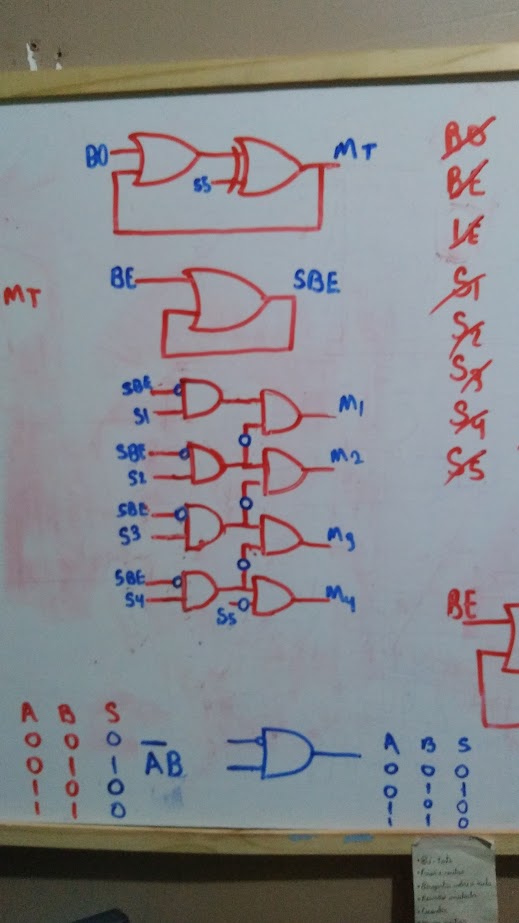 BO
S5
MT
BE
SBE
MT
SBE
S1
M1
SBE
S2
M2
SBE
S3
M3
SBE
S4
S5
M4
BO
BE
LE
S1
S2
S3
S4
S5
BE
A B S
0 0 0
0 1 1
1 0 0
1 1 0
AB
A B S
0 0 0
0 1 1
1 0 0
1 1 0